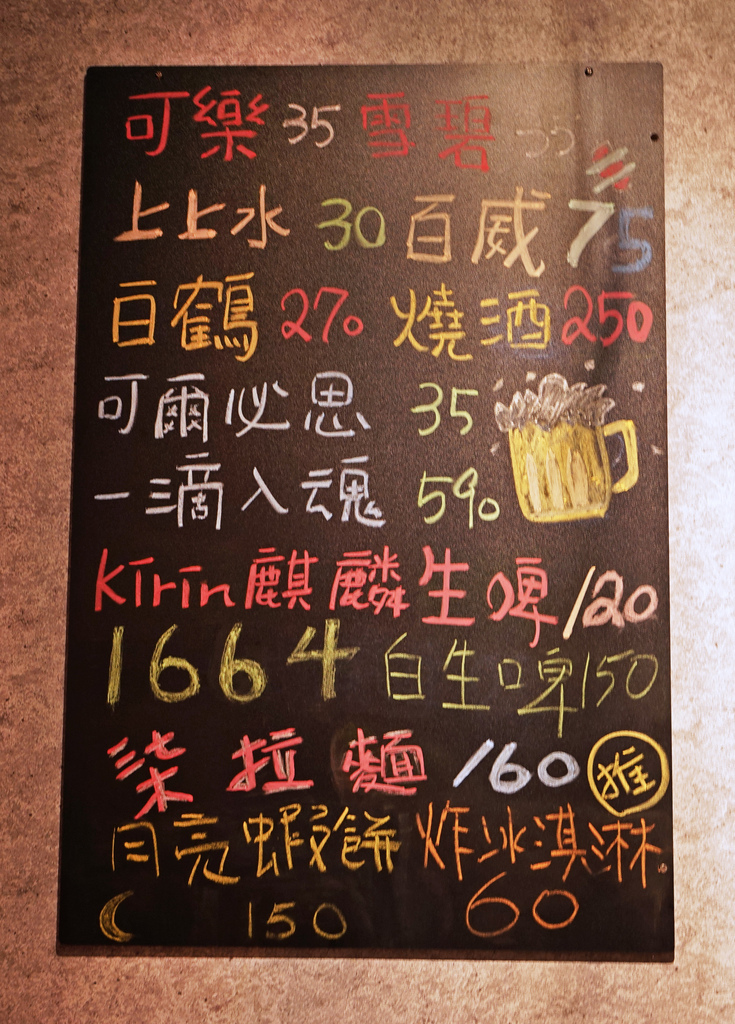 可樂 35 雪碧 35
上上水 30 百威 75
白鶴 270 燒酒 250
可爾必思 35
一滴入魂 590
Kirin麒麟生啤 120
1664 白生啤 150
柒拉麵 160 推
月亮蝦餅 炸冰淇淋
150 60